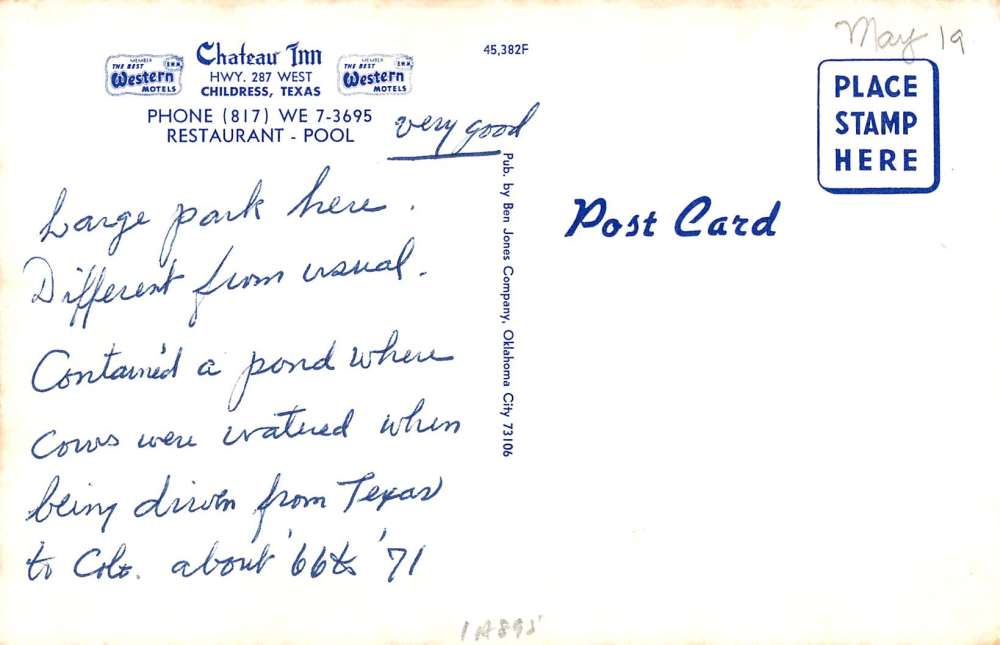 May 19
MEMBER
THE BEST
Western
MOTELS
Chateau Inn
HWY. 287 WEST
CHILDRESS, TEXAS
MEMBER
THE BEST
Western
MOTELS
PHONE (817) WE 7-3695
RESTAURANT - POOL
45,382F
very good
PLACE
STAMP
HERE
Post Card
Pub. by Ben Jones Company, Oklahoma City 73106
Large park here.
Different from usual.
Contain'd a pond where
cows were watered when
being driven from Texas
to Colo. about '66 to '71
1A895